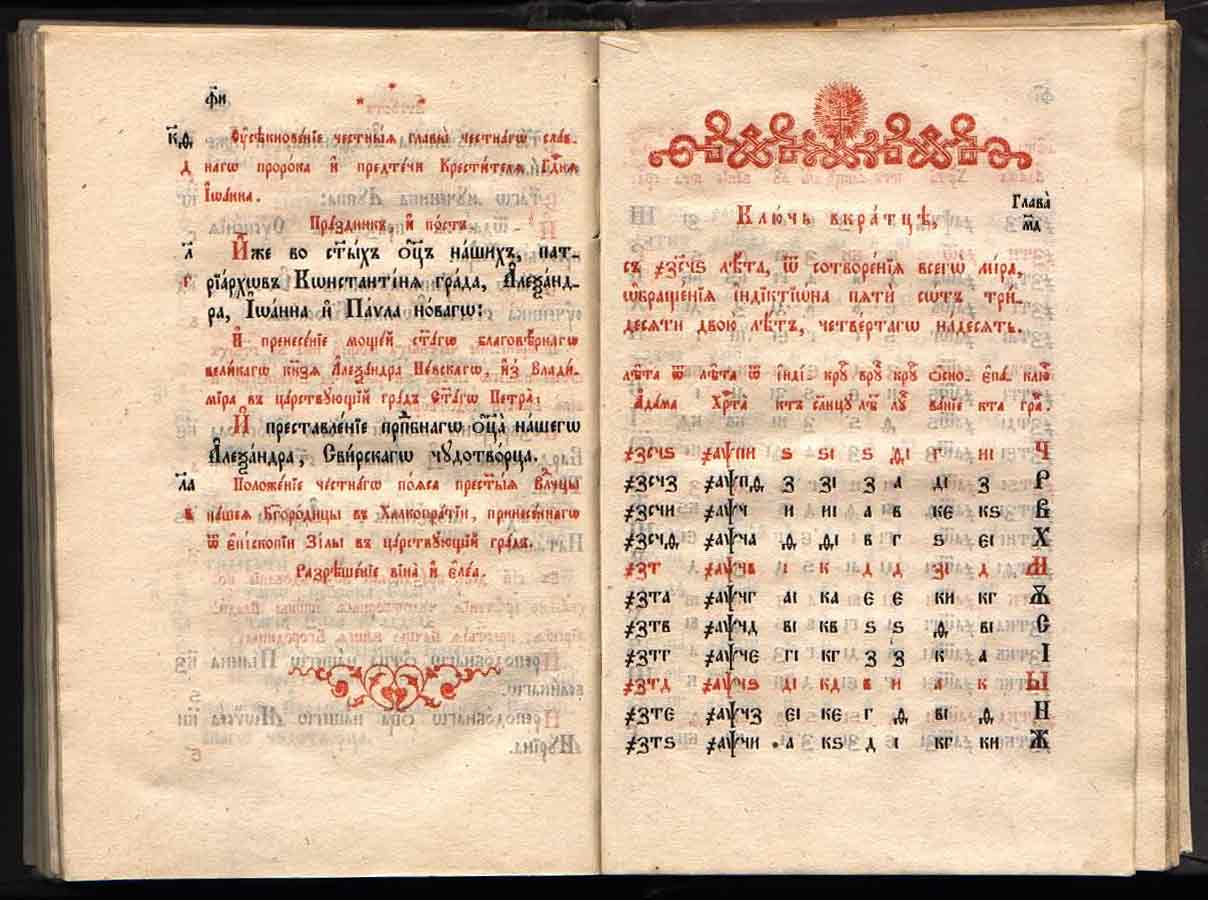 фи
к҃ѳ Ѹ҆сѣкнове́нїе честны́ѧ главы̀ честна́гѡ сла́в-
д нагѡ прⷪ҇ро́ка и҆ предте́чи Крⷭ҇ти́телѧ Гдⷭ҇нѧ
І҆ѡа́нна.
Пра́здникъ, и҆ по́стъ.
л҃ И҆́же во ст҃ы́хъ ѻ҆ц҃ъ на́шихъ, пат-
г рїа́рхѡвъ Кѡнстанті́нѧ гра́да, А҆леѯа́нд-
ра, І҆ѡа́нна и҆ Па́ѵла но́вагѡ:
И҆ пренесе́нїе моще́й ст҃а́гѡ благовѣ́рнагѡ
вели́кагѡ кн҃зѧ А҆леѯа́ндра Не́вскагѡ, и҆з̾ Влади́-
міра въ ца́рствꙋющїй гра́дъ Ст҃а́гѡ Петра̀:
И҆ преставле́нїе прпⷣбнагѡ ѻ҆ц҃а̀ на́шегѡ
А҆леѯа́ндра, Сви́рскагѡ чꙋдотво́рца.
л҃а Положе́нїе честна́гѡ по́ѧса прест҃ы́ѧ Влⷣчцы
в на́шеѧ Бг҃оро́дицы въ Халкопра́тїи, принесе́ннагѡ
ѿ є҆пⷭ҇ко́пїи Зи́лы въ ца́рствꙋющїй гра́дъ.
Разрѣше́нїе вїна̀ и҆ є҆ле́а.
Глава̀
м҃а
Клю́чь вкра́тцѣ,
съ ҂зс҃чѕ лѣ́та, ѿ сотворе́нїѧ всегѡ̀ мі́ра,
ѡ҆браще́нїѧ і҆ндїктїѡ́на пѧти́ сотъ три́-
десѧти двою̀ лѣ́тъ, четве́ртагѡ на́десѧть.
лѣ́та ѿ лѣ́та ѿ і҆нді́- крꙋ́ врꙋ́ крꙋ́ ѻ҆сно- є҆па- клю́
А҆да́ма Хрⷭ҇та̀ ктъ сл҃нцꙋ лѣ́ лꙋ́ ва́нїе кта гра́.
҂зсчѕ ҂аѱпи ѕ ѕі ѕ ѳі г иі Ч
҂зсчз ҂аѱпѳ з зі з а ді з Р
҂зсчи ҂аѱч и иі а в ке кѕ В
҂зсчѳ ҂аѱча ѳ ѳі в г ѕ еі Х
҂зт ҂аѱчв і к д д зі д Л
҂зта ҂аѱчг аі ка е е ки кг Ѫ
҂зтв ҂аѱчд ві кв ѕ ѕ ѳ ві Є
҂зтг ҂аѱче гі кг з з к а І
҂зтд ҂аѱчѕ ді кд в и а к Ы
҂зте ҂аѱчз еі ке г ѳ ві ѳ Н
҂зтѕ ҂аѱчи а кѕ д і кг ки Ж